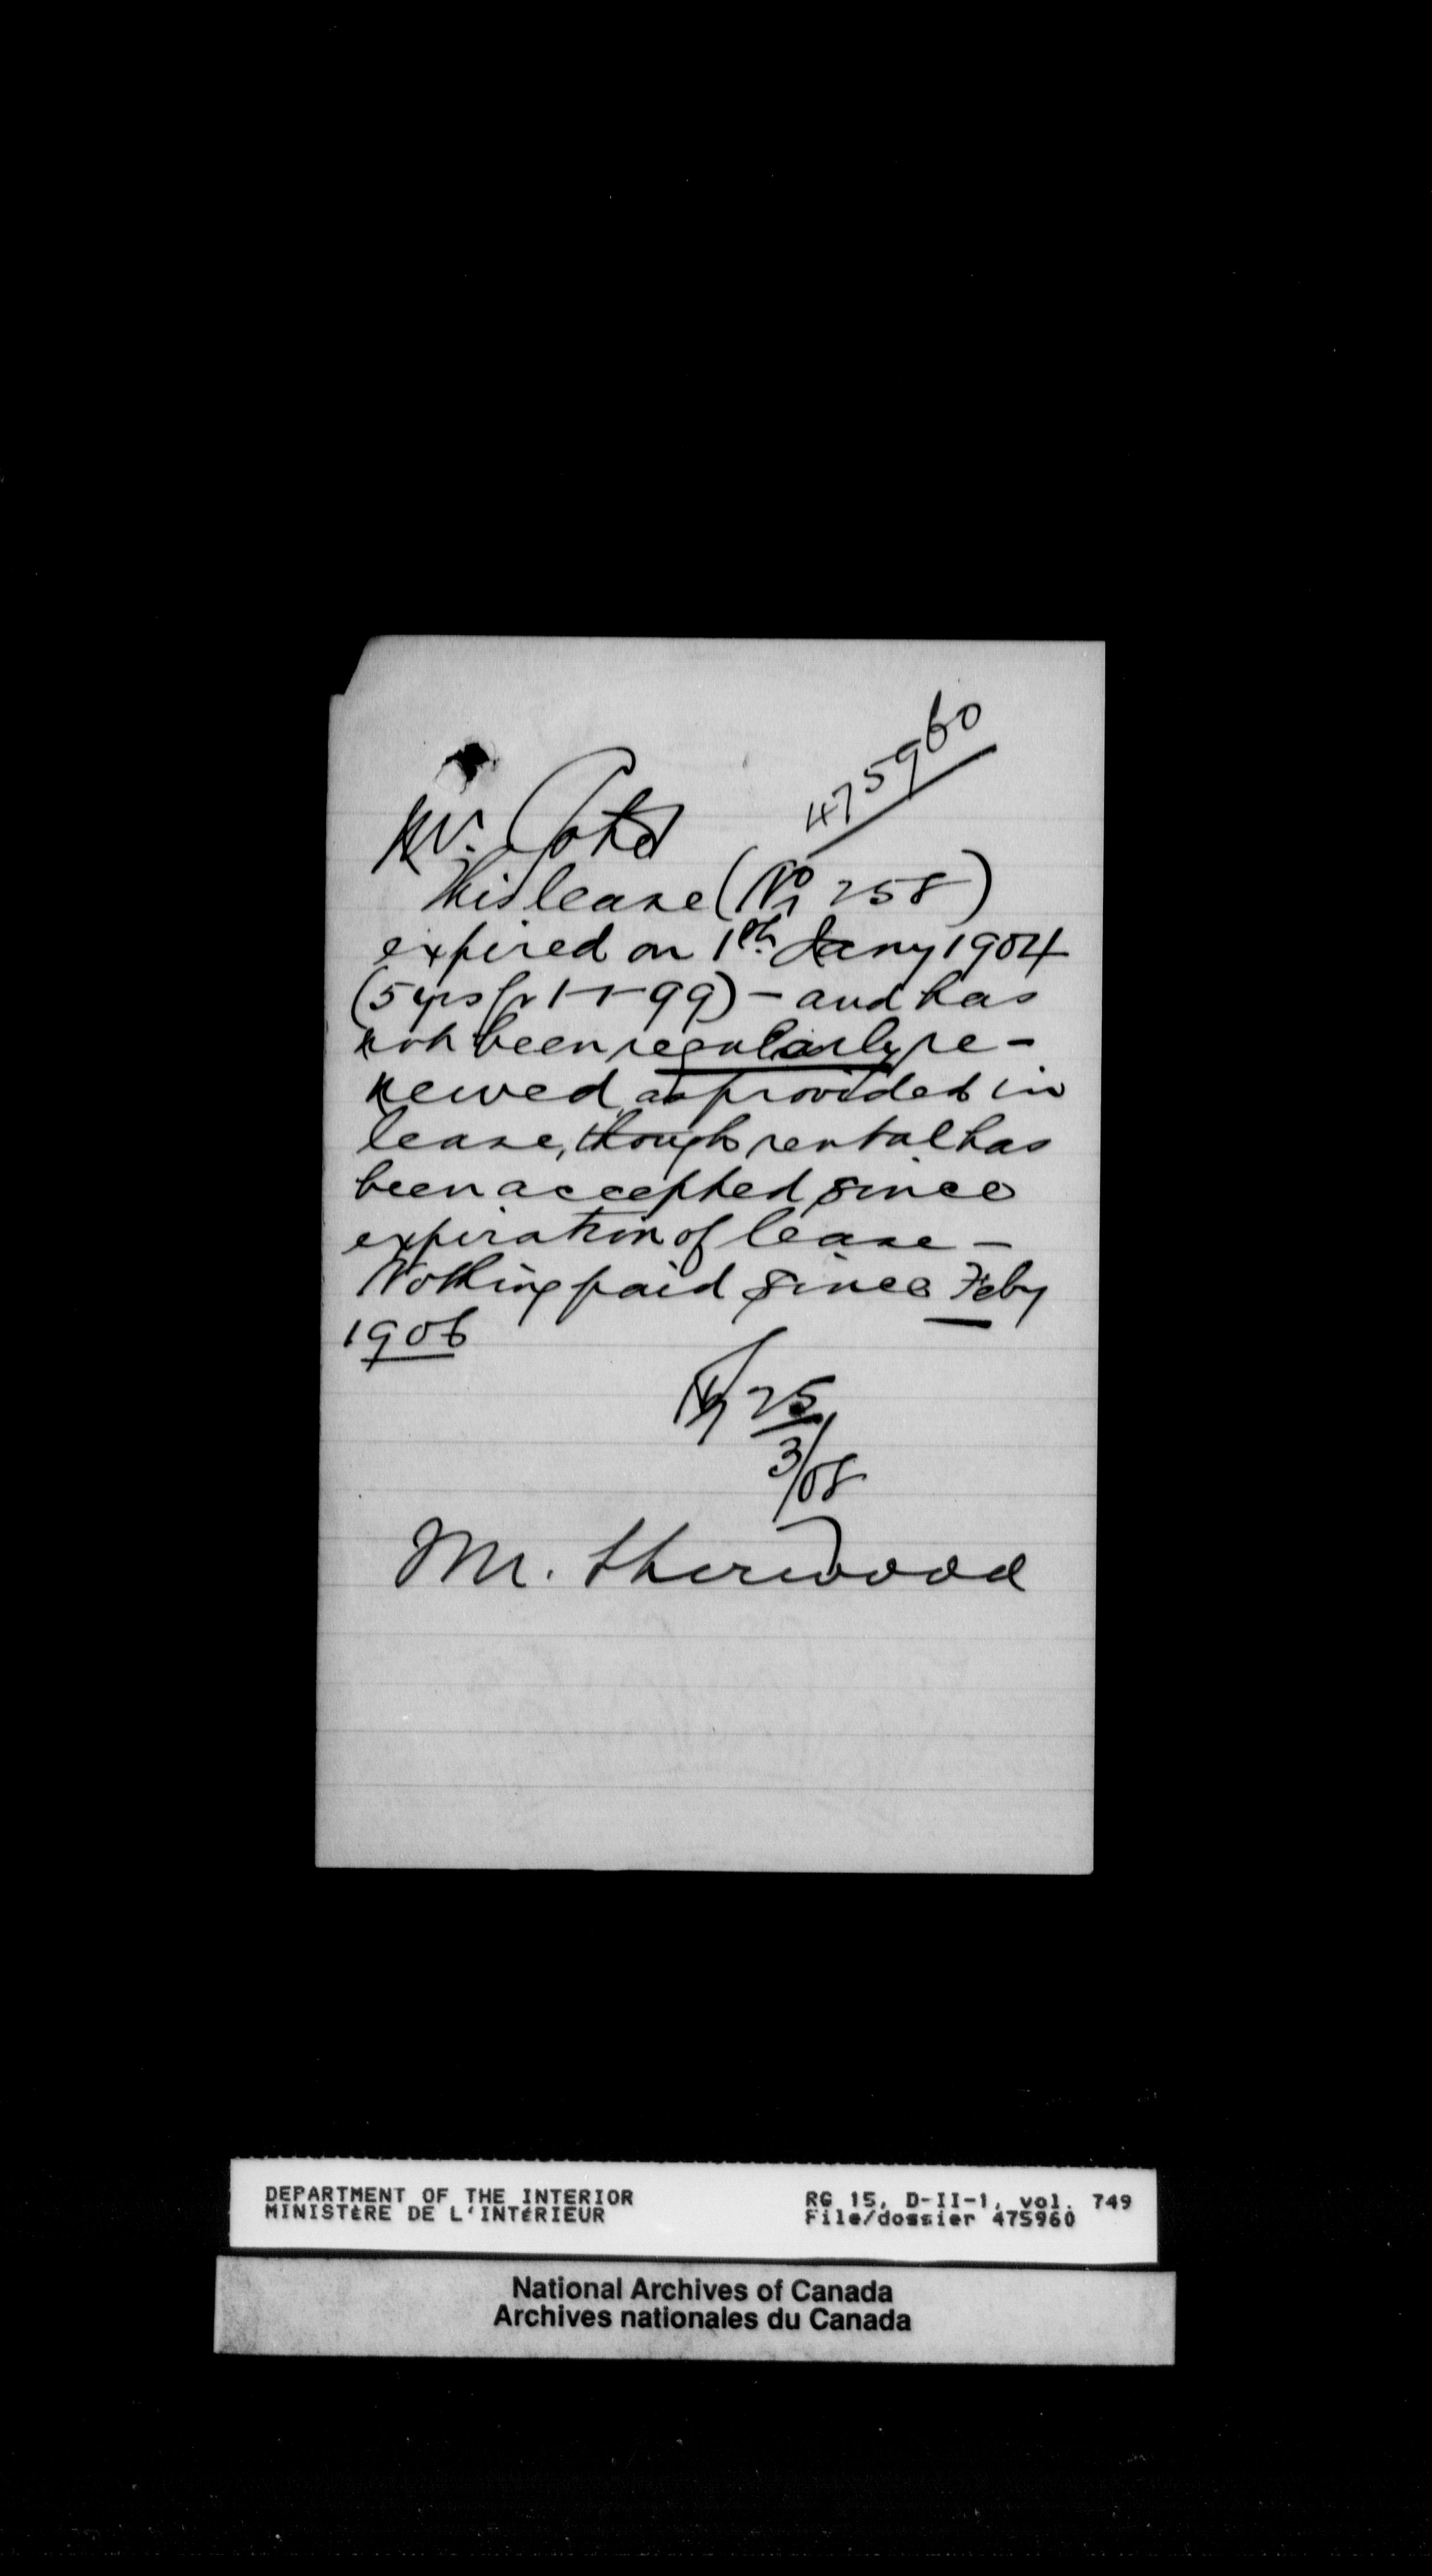 475960
Mr. Coté
This lease (No 258)
expired on 1st Jany 1904
(5 yrs fr 1-1-99) - and has
not been regularly re-
newed as provided in
lease, though rental has
been accepted since
expiration of lease -
Nothing paid since Feby
1906
25
3/08
Mr. Sherwood
DEPARTMENT OF THE INTERIOR RG 15, D-II-1, vol. 749
MINISTÈRE DE L'INTÉRIEUR File/dossier 475960
National Archives of Canada
Archives nationales du Canada